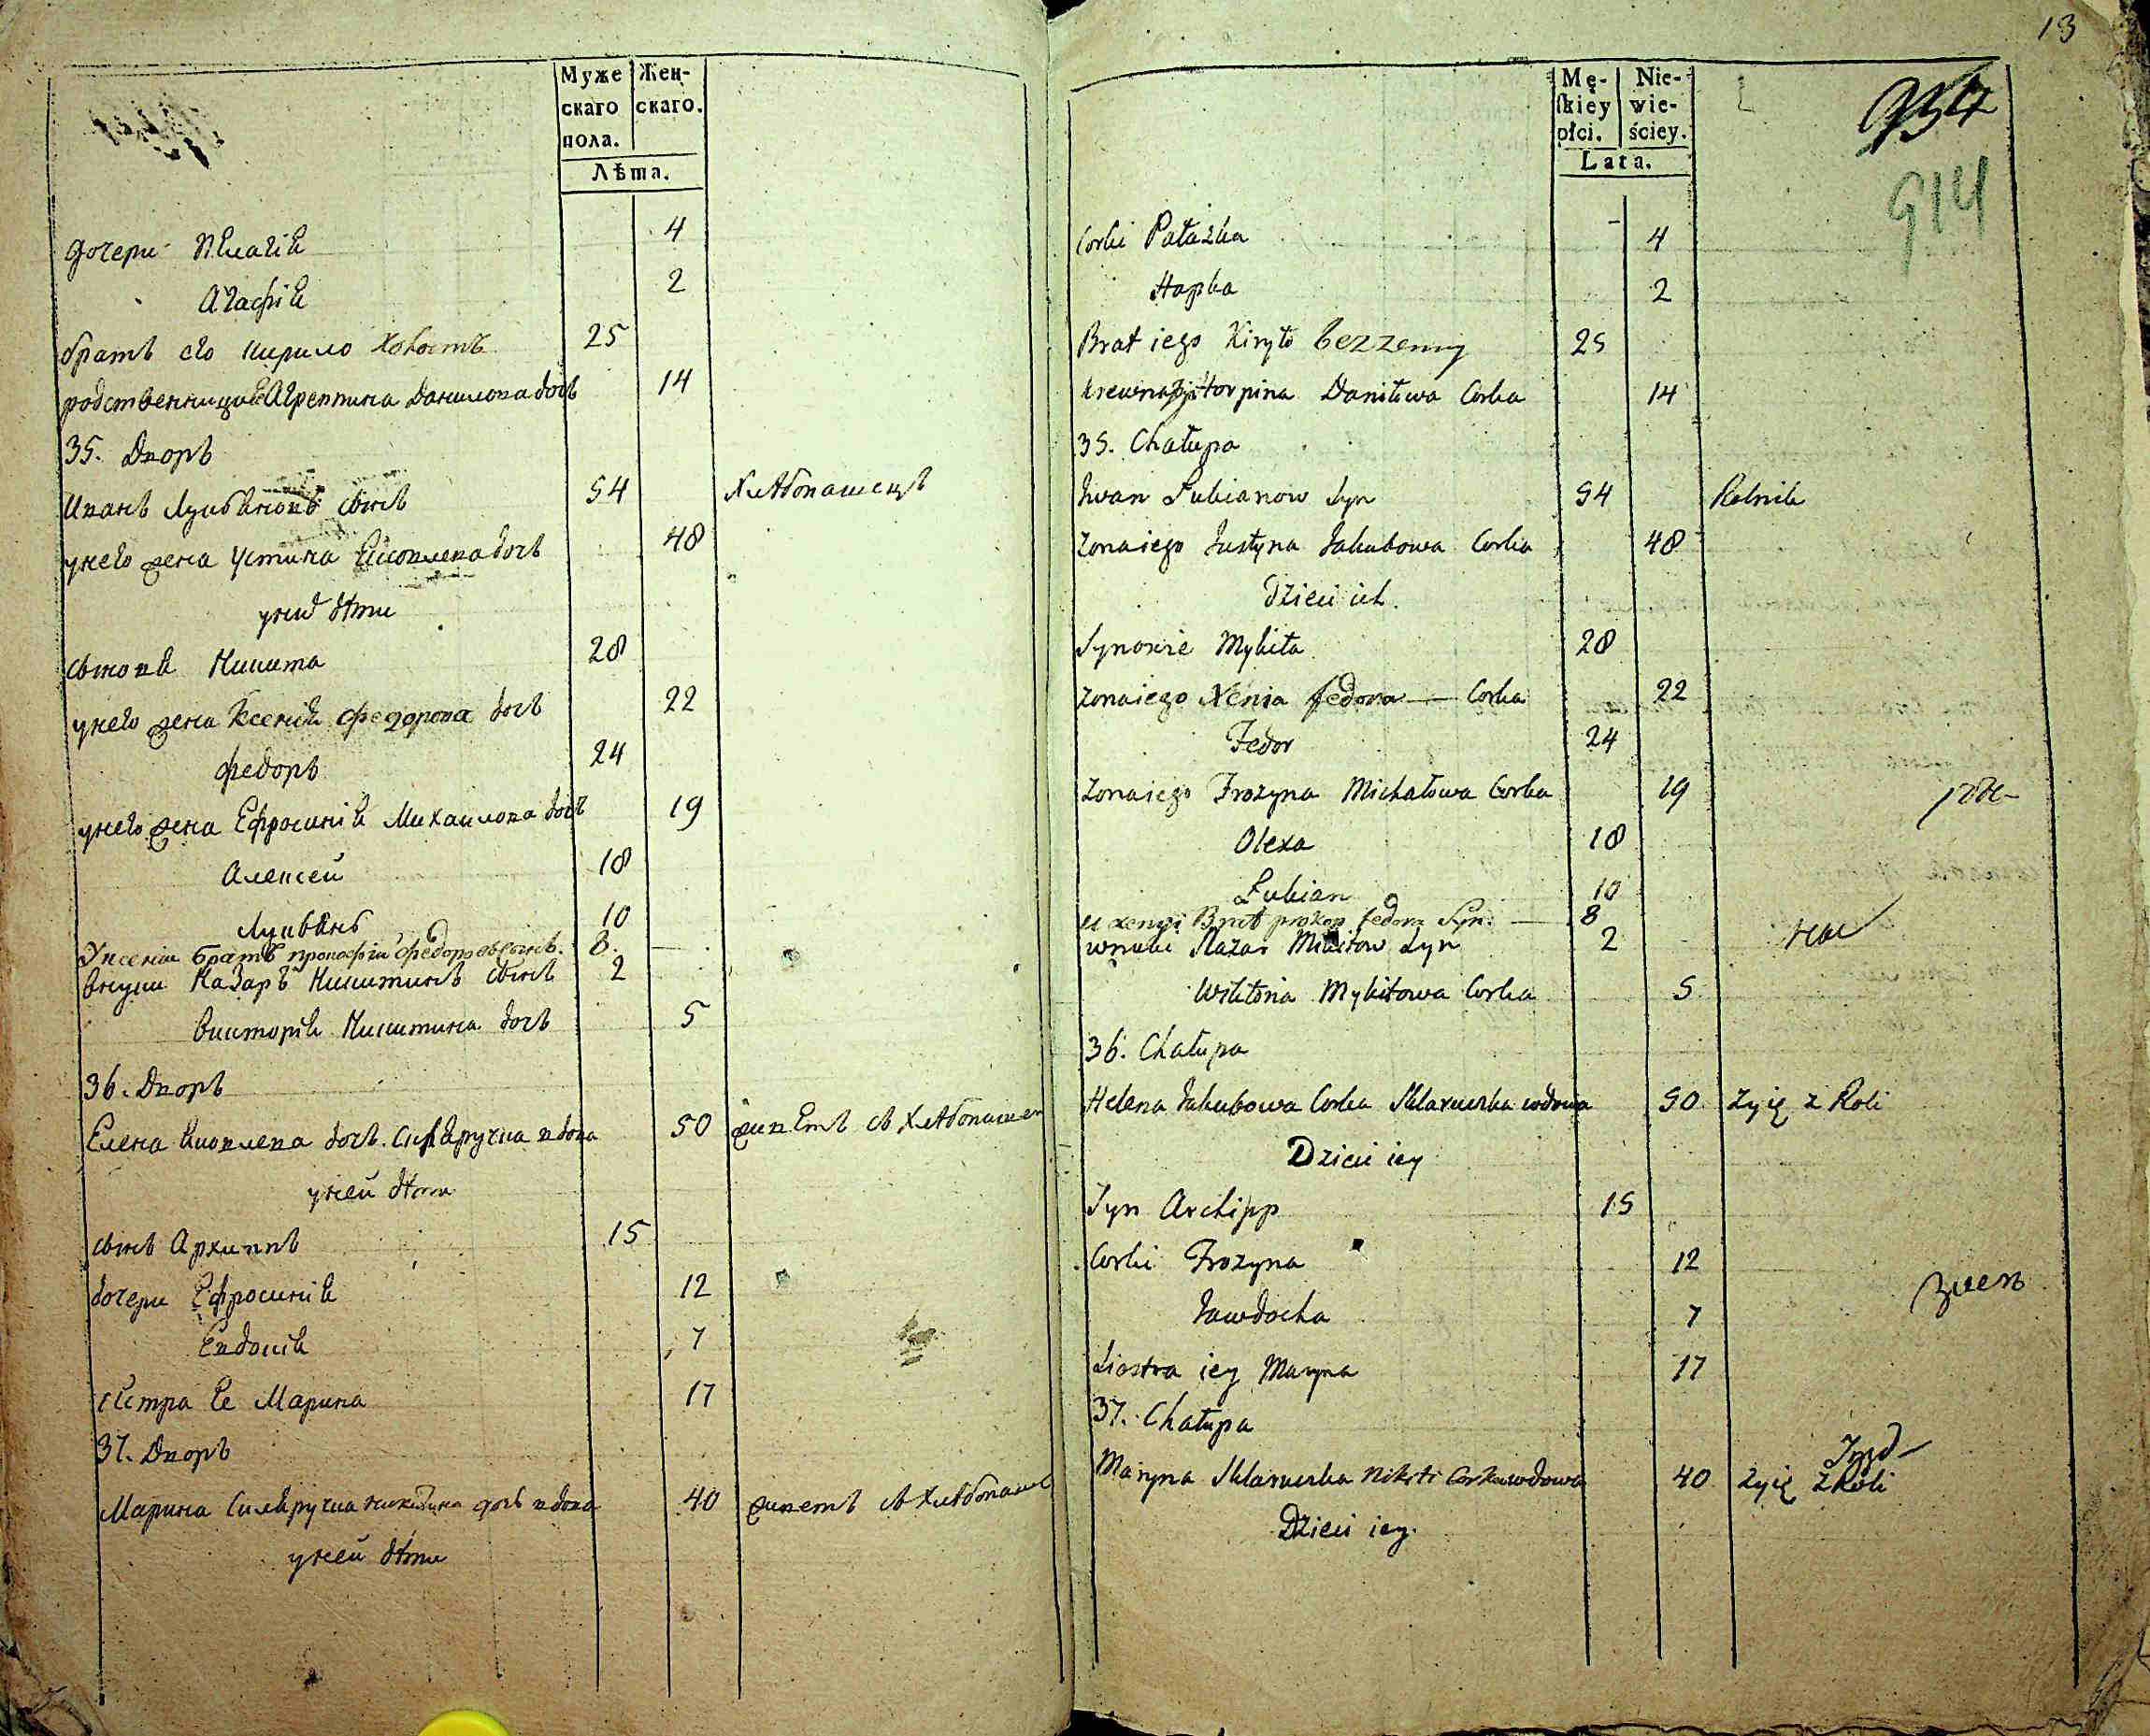 Муже
скаго
пола.
Жен-
скаго.
Лѣта.
дочери Пелагіа 4
Агафіа 2
братъ его Кирило холостъ 25
родственница Агрепина Данилова дочь 14
35. Дворъ
Иванъ Лукьяновъ сынъ 54 Хлѣбопашецъ
у него жена Устина Яковлева дочь 48
у них дѣти
сыновя Никита 28
у него жена Ксенія федорова дочь 22
федоръ 24
у него жена Ефросинія Михаилова дочь 19
Алексей 18
Лукьянъ 10
У ксении братъ прокофіи федоровъ сынъ. 8.
внуки Назаръ Никитинъ сынъ 2
Викторія Никитина дочь 5
36. Дворъ
Елена Яковлева дочь вдова 50 живетъ съ хлѣбопашен
у неи дѣти
сынъ Архиппъ 15
дочери Ефросинія 12
Евдокія 7
сестра ее Марина 17
37. Дворъ
Марина никитина дочь вдова 40 живетъ съ хлѣбопаше
у неи дѣти
13
Mę-
skiey
płci.
Nie-
wie-
ściey.
Lata.
934
914
Corki Pałazka 4
Hapka 2
Brat iego Kiryło bezzenny 25
krewna Horpina Daniłowa Corka 14
35. Chałupa
Iwan Łukianow Syn 54 Rolnik
Zona iego Justyna Jakubowa Corka 48
Dzieci ich.
Synowie Mykita 28
Zona iego Xenia fedora Corka 22
Fedor 24
Zona iego Frozyna Michałowa Corka 19
Olexa 18
Łukian 10
u xenyi Brat prokop fedora Syn. 8
wnuki Nazar Mikitow Syn 2
Wiktoria Mykitowa Corka 5
36. Chałupa
Helena Jakubowa Corka wdowa 50 Zyię z Roli
Dzieci iey
Syn Archipp 15
Corki Frozyna 12
Jawdocha 7
Siostra iey Maryna 17
37. Chałupa
Maryna Nikiti Corka wdowa 40 Zyię z Roli
Dzieci iey.